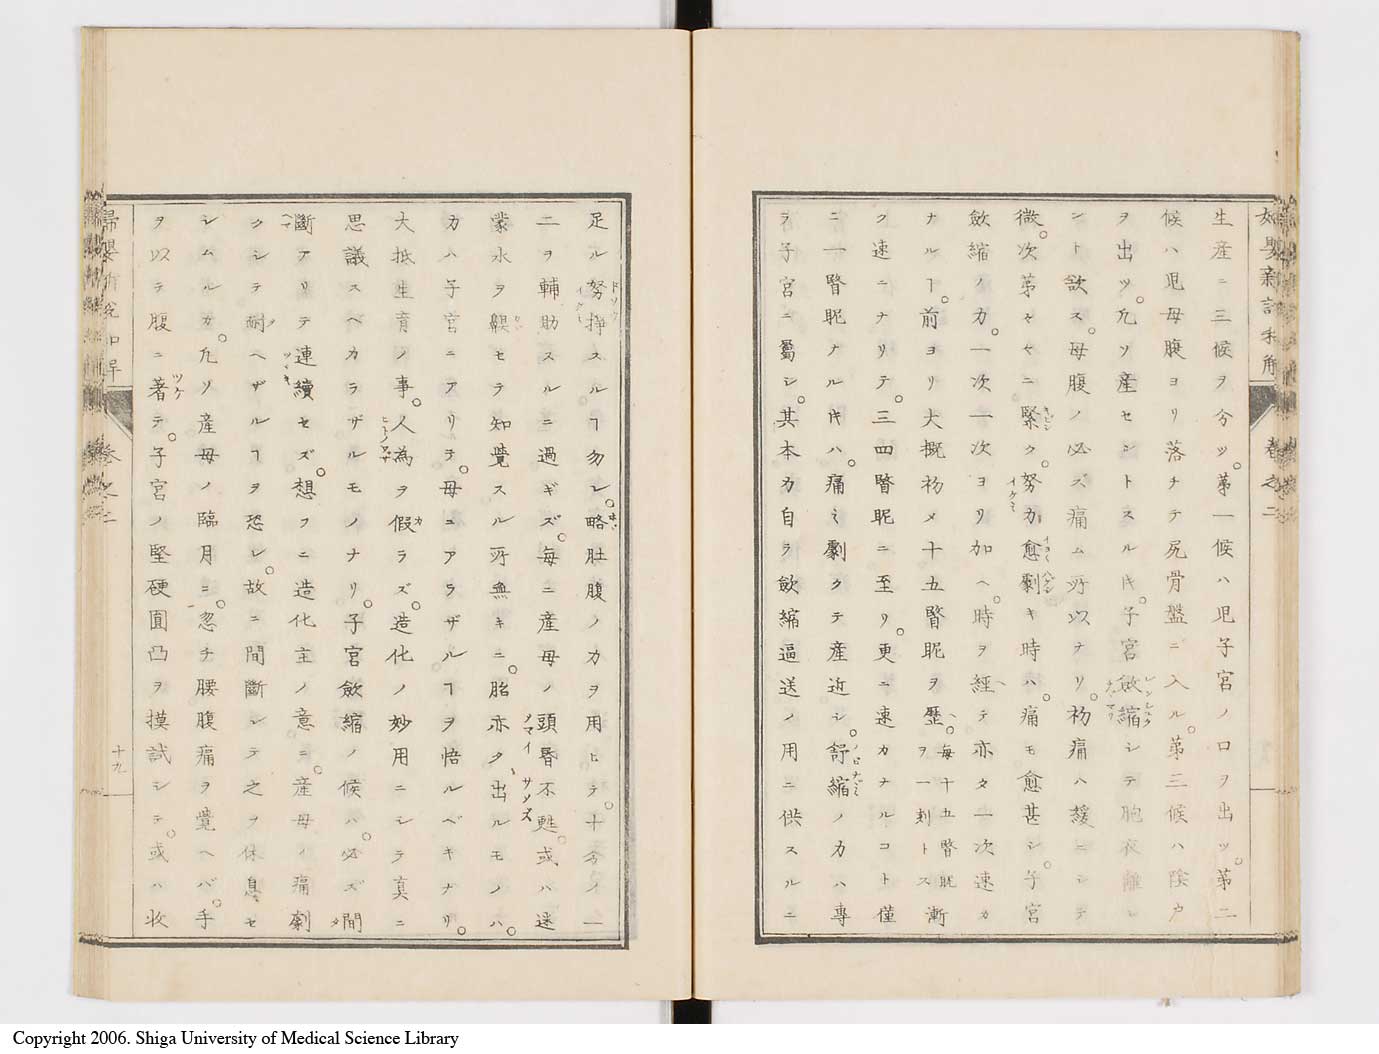 生産ニ三候ヲ分ツ。第一候ハ児子宮ノ口ヲ出ツ。第二
候ハ児母腹ヨリ落チテ尻骨盤ニ入ル。第三候ハ陰戸
ヲ出ツ。凢ソ産セントスル𪜈。子宮斂縮シテ胞衣離レ
ント欲ス。母腹ノ必ズ痛ム所以ナリ。初痛ハ緩ニシテ
微。次第々々ニ緊ク。努力愈劇キ時ハ。痛モ愈甚シ。子宮
斂縮ノ力。一次一次ヨリ加ヘ。時ヲ経テ亦タ一次速カ
ナルヿ。前ヨリ大概初メ十五瞥眤ヲ歴。毎十五瞥眤ヲ一刹トス漸
ク速ニナリテ。三四瞥眤ニ至リ。更ニ速カナルコト僅
ニ一瞥眤ナル𪜈ハ。痛ミ劇クテ産近シ。舒縮ノ力ハ專
ラ子宮ニ屬シ。其本力自ラ斂縮逼送ノ用ニ供スルニ
足ル努掙スルヿ勿レ。略肚腹ノ力ヲ用ヒテ。十分ノ一
二ヲ輔助スルニ過ギズ。毎ニ産母ノ頭昏不甦。或ハ迷
蒙水ヲ
セラ知覺スル所無キニ。胎亦タ出ルモノハ。
力ハ子宮ニアリテ。母ニアラザルヿヲ悟ルベキナリ。
大抵生育ノ事。人為ヲ假ラズ。造化ノ妙用ニシテ真ニ
思議スベカラザルモノナリ。子宮斂縮ノ候ハ。必ズ間
斷アリテ連續セズ。想フニ造化主ノ意ニ。産母ノ痛劇
クシテ耐ヘザルヿヲ恐レ。故ニ間斷シテ之ヲ休息セ
シムルカ。凢ソ産母ノ臨月ニ。忽チ腰腹痛ヲ覺ヘバ。手
ヲ以テ腹ニ著テ。子宮ノ堅硬圓凸ヲ摸試シテ。或ハ收
十九
Copyright 2006. Shiga University of Medical Science Library